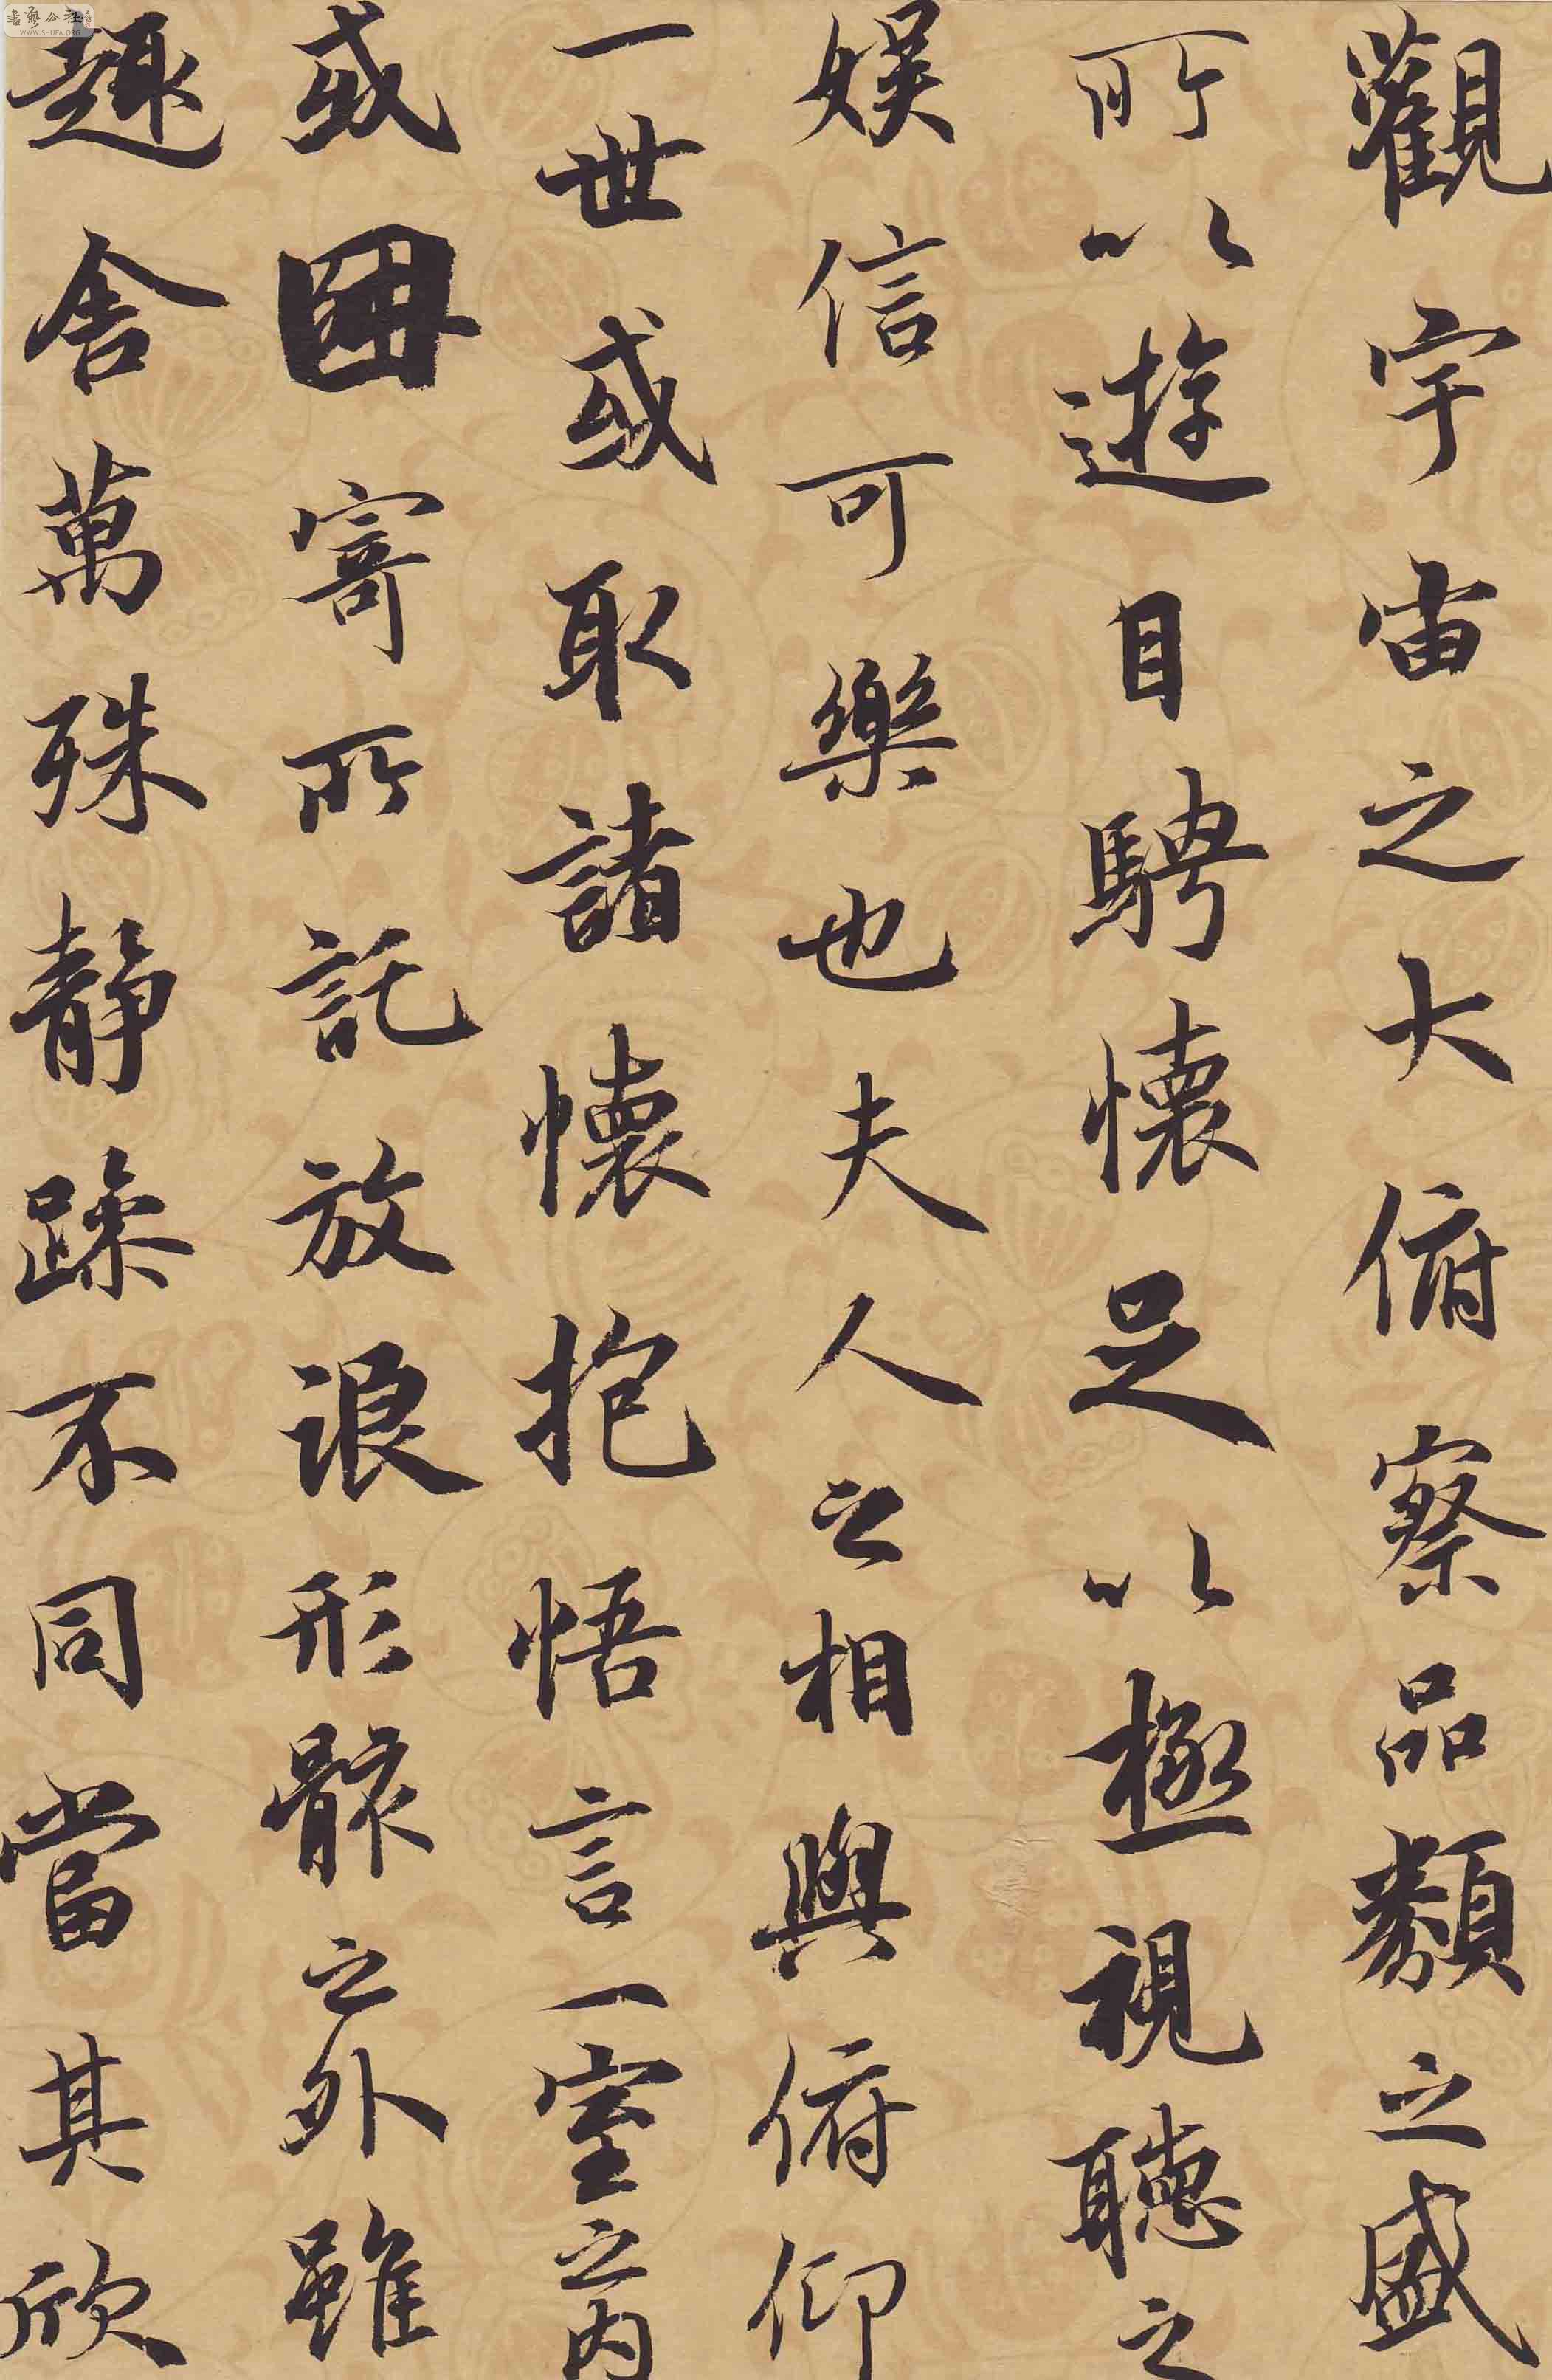 觀宇宙之大俯察品類之盛
所以遊目騁懷足以極視聽之
娛信可樂也夫人之相與俯仰
一世或取諸懷抱悟言一室之內
或因寄所託放浪形骸之外雖
趣舍萬殊靜躁不同當其欣
書藝公社
WWW.SHUFA.ORG